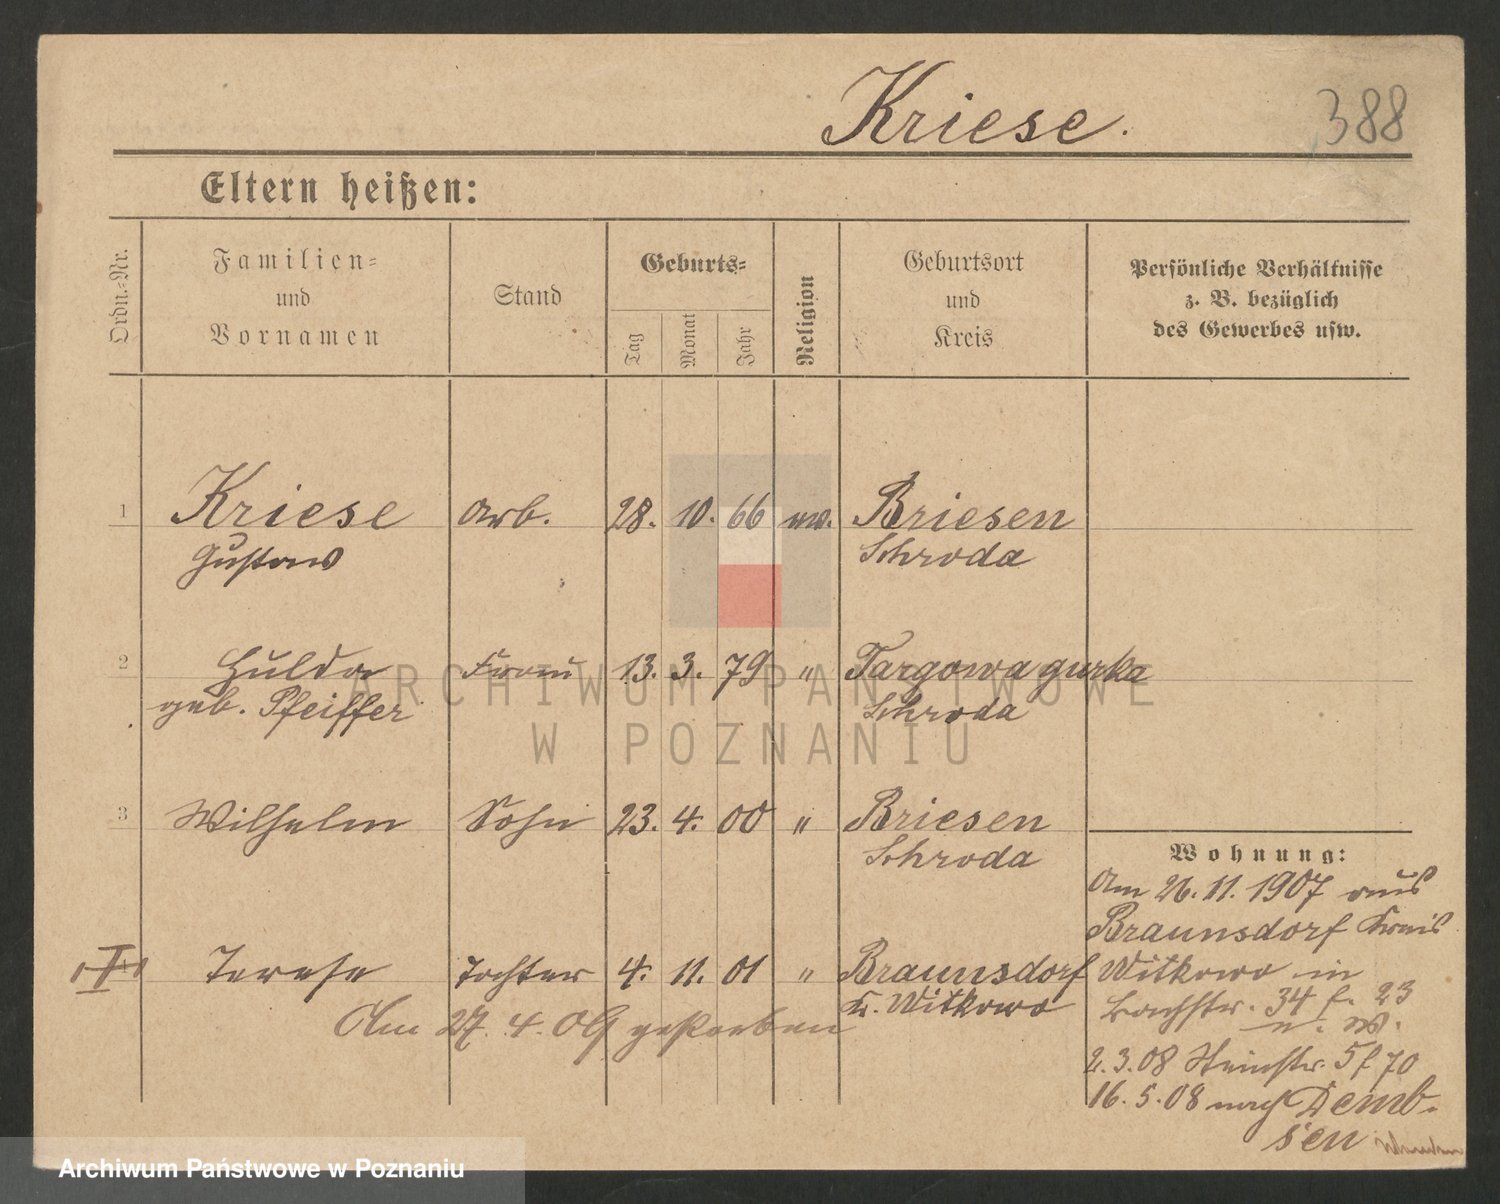 Kriese.
388
Eltern heißen:
Ordn.-Nr.
Familien-
und
Vornamen
Stand
Geburts-
Tag
Monat
Jahr
Religion
Geburtsort
und
Kreis
Persönliche Verhältnisse
z. B. bezüglich
des Gewerbes usw.
1 Kriese Arb. 28. 10. 66 ev. Briesen
Gustav Schroda
2 Hulda Frau 13. 3. 79 " Targowagurka
geb. Pfeiffer Schroda
3 Wilhelm Sohn 23. 4. 00 " Briesen
Schroda
Wohnung:
Am 26. 11. 1907 aus
Braunsdorf Kreis
Witkowo in
Bachstr. 34 f. 23
2. 3. 08 Steinstr. 5 f 70
16. 5. 08 nach Demb-
sen
Terese Tochter 4. 11. 01 " Braunsdorf
Kr. Witkowo
Am 27. 4. 09 gestorben
ARCHIWUM PAŃSTWOWE
W POZNANIU
Archiwum Państwowe w Poznaniu